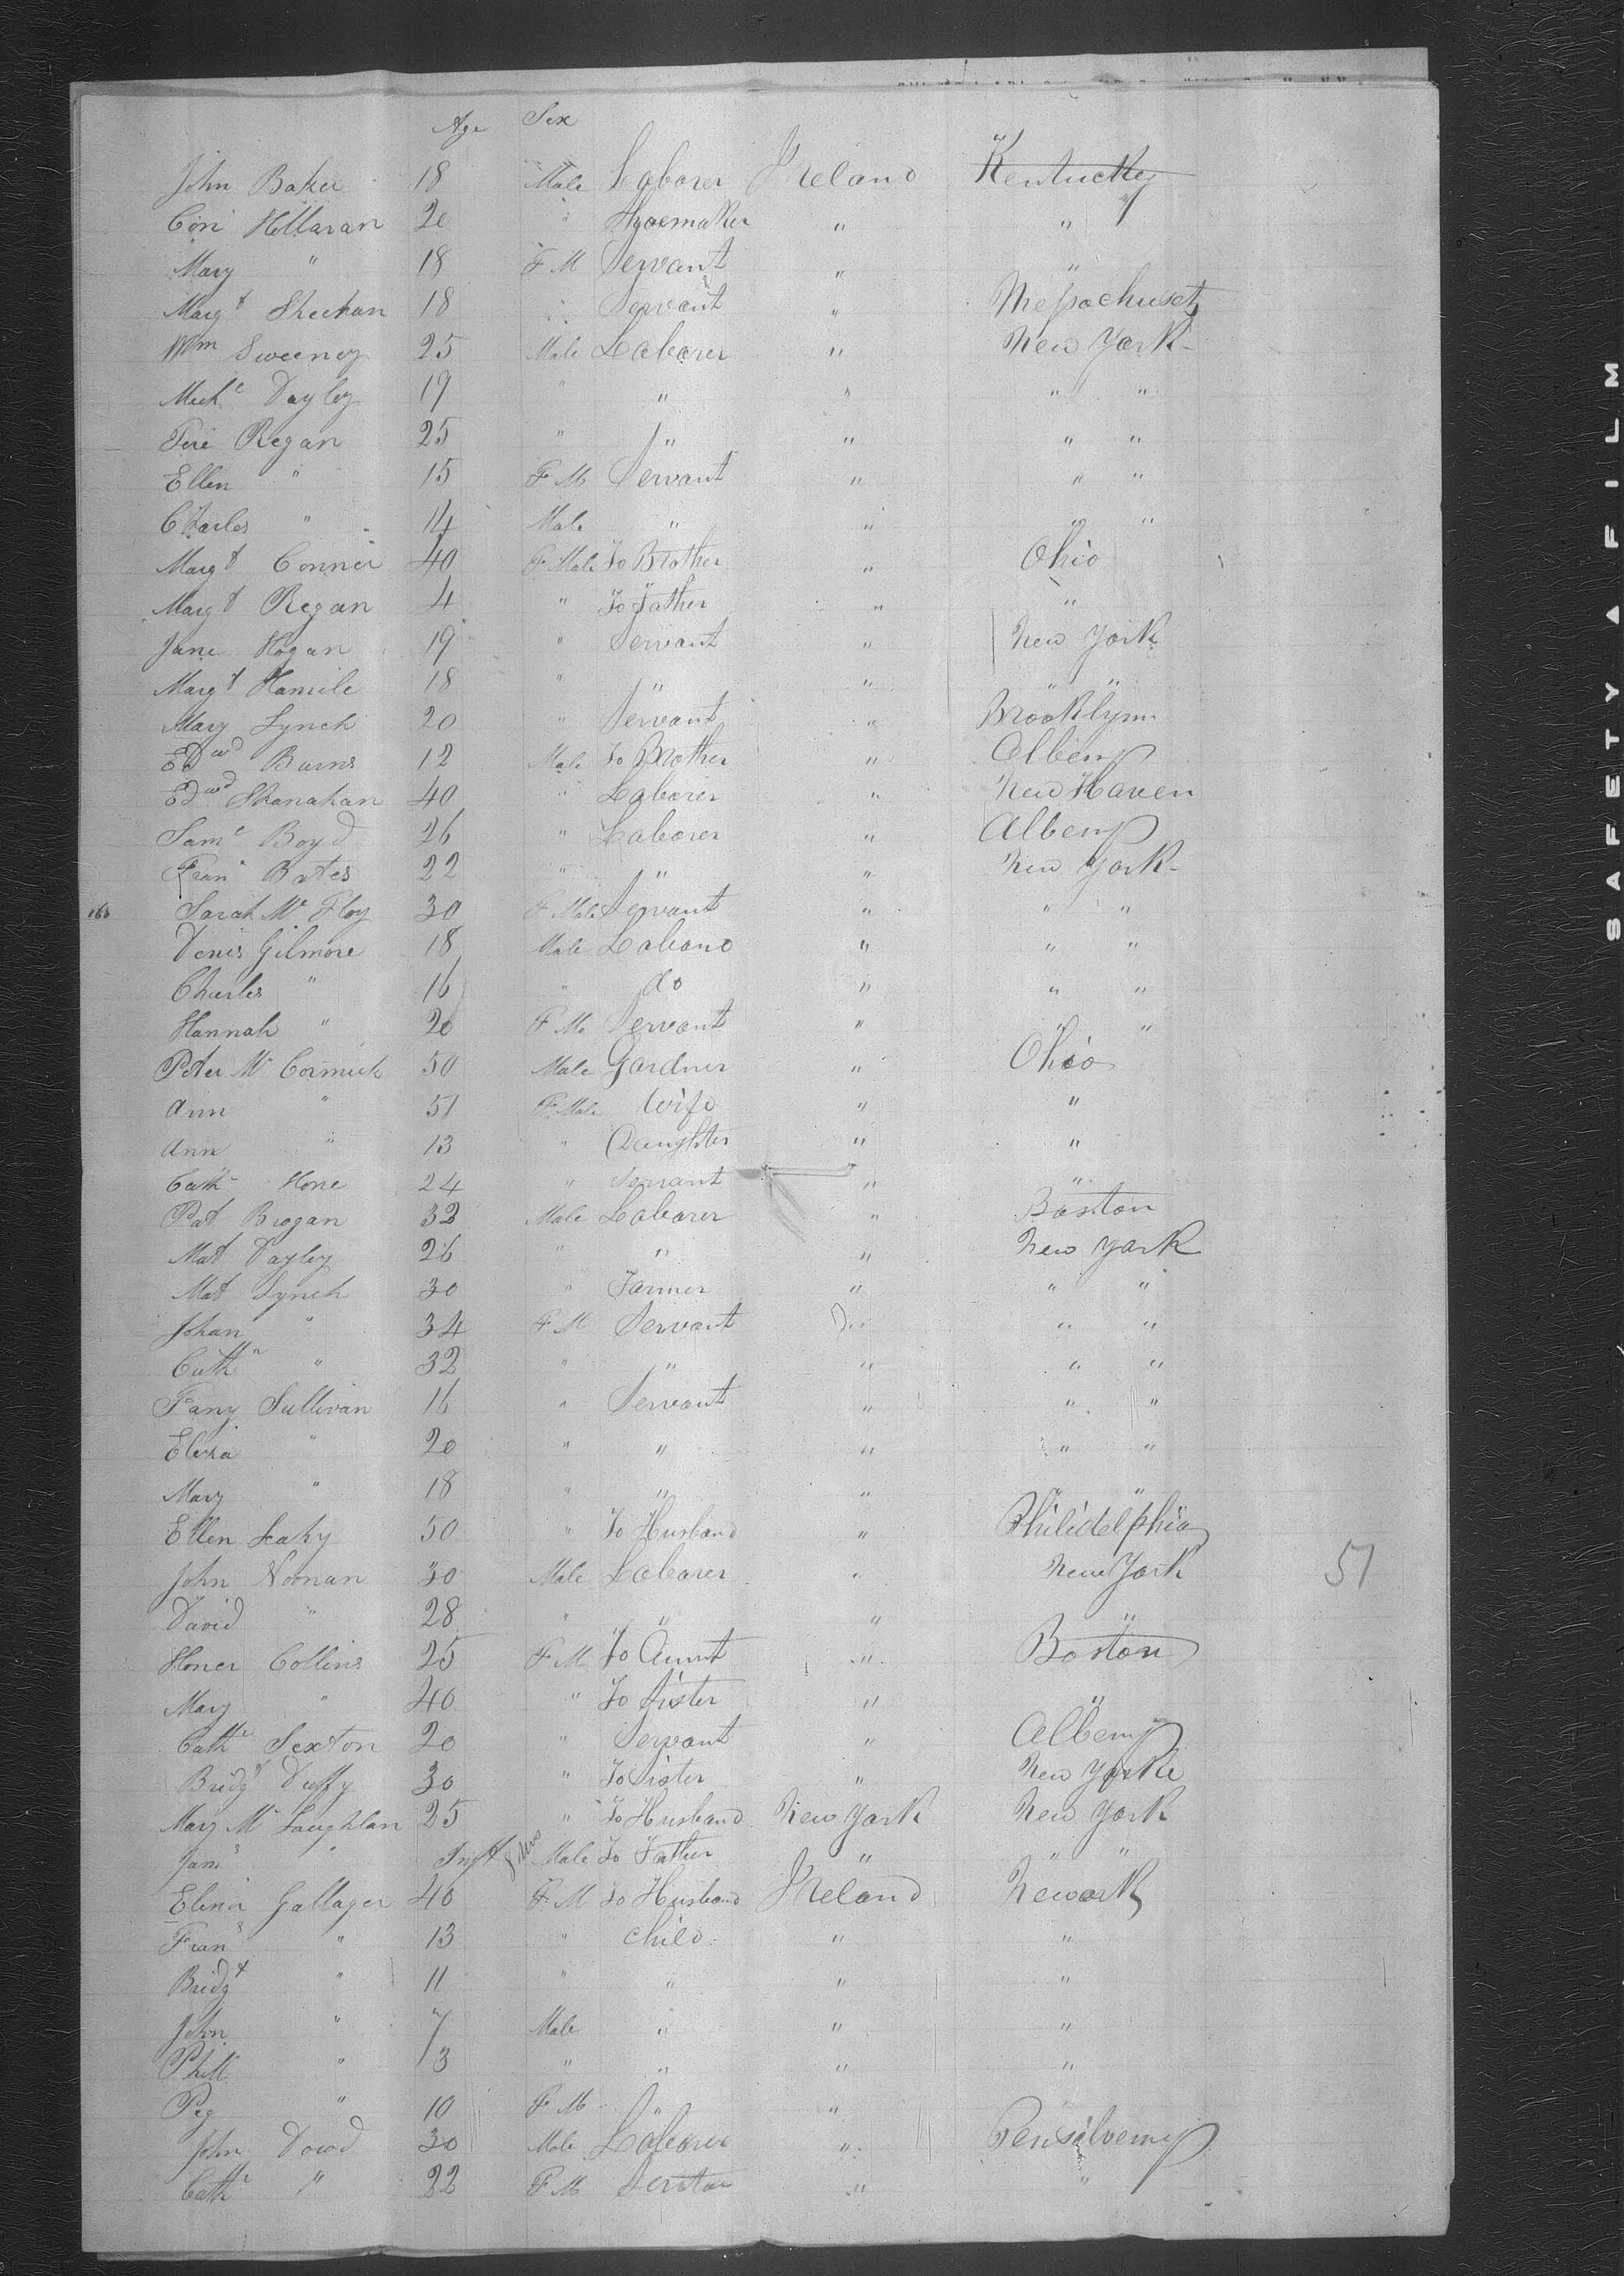 Age Sex
John Baker 18 Male Laborer Ireland Kentucky
Con Hollaran 20 " Shoemaker " "
Mary " 18 F M Servant " "
Marg^t Sheehan 18 " Servant " Massachusets
W^m Sweeney 25 Male Laborer " New York
Mich^l Dayley 19 " " " " "
Jere Regan 25 " " " " "
Ellen " 15 F M Servant " " "
Charles " 14 Male " " " "
Marg^t Conner 40 F Male To Brother " Ohio
Marg^t Regan 4 " To Father " "
Jane Hogan 19 " Servant " New York
Marg^t Hamile 18 " " " " "
Mary Lynch 20 " Servant " Brooklynn
Ed^wd Burns 12 Male To Brother " Albeny
Ed^wd Shanahan 40 " Laborer " New Haven
Sam^l Boyd 26 " Laborer " Albeny
Fran^s Bates 22 " " " New York
Sarah M^c Floy 30 F Male Servant " " "
Denis Gilmore 18 Male " " "
Charles " 16 " do " " "
Hannah " 20 F Ma Servant " " "
Peter M^c Cormick 50 Male Gardner " Ohio
Ann " 51 F Male Wife " "
Ann " 13 " Daughter " "
Cath^n Hone 24 " Servant " "
Pat Brogan 32 Male Laborer " Boston
Mat Dayley 26 " " " New York
Mat Lynch 30 " Farmer " " "
Johan " 34 F M Servant " " "
Cath^n " 32 " " " " "
Fany Sullivan 16 " Servant " " "
Eliza " 20 " " " " "
Mary " 18 " " " " "
Ellen Leahy 50 " To Husband " Philidelphia
John Noonan 30 Male Laborer " New York 51
David " 28 " " " "
Honer Collins 25 F M To Aunt " Boston
Mary " 40 " To Sister " "
Cath^n Sexton 20 " Servant " Albeny
Bridg^t Duffy 30 " To Sister " New York
Mary M^c Laughlan 25 " To Husband New York New York
Jam^s " Inft Male To Father " " "
Elenor Gallager 40 F. M To Husband Ireland Newark
Fran^s " 13 " Child " "
Bridg^t " 11 " " " "
John " 7 Male " " "
Phill " 3 " " " "
Peg " 10 F M " "
John Dowd 30 Male Laborer " Pensilveny
Cath^n " 22 F M " "
SAFETY A FILM